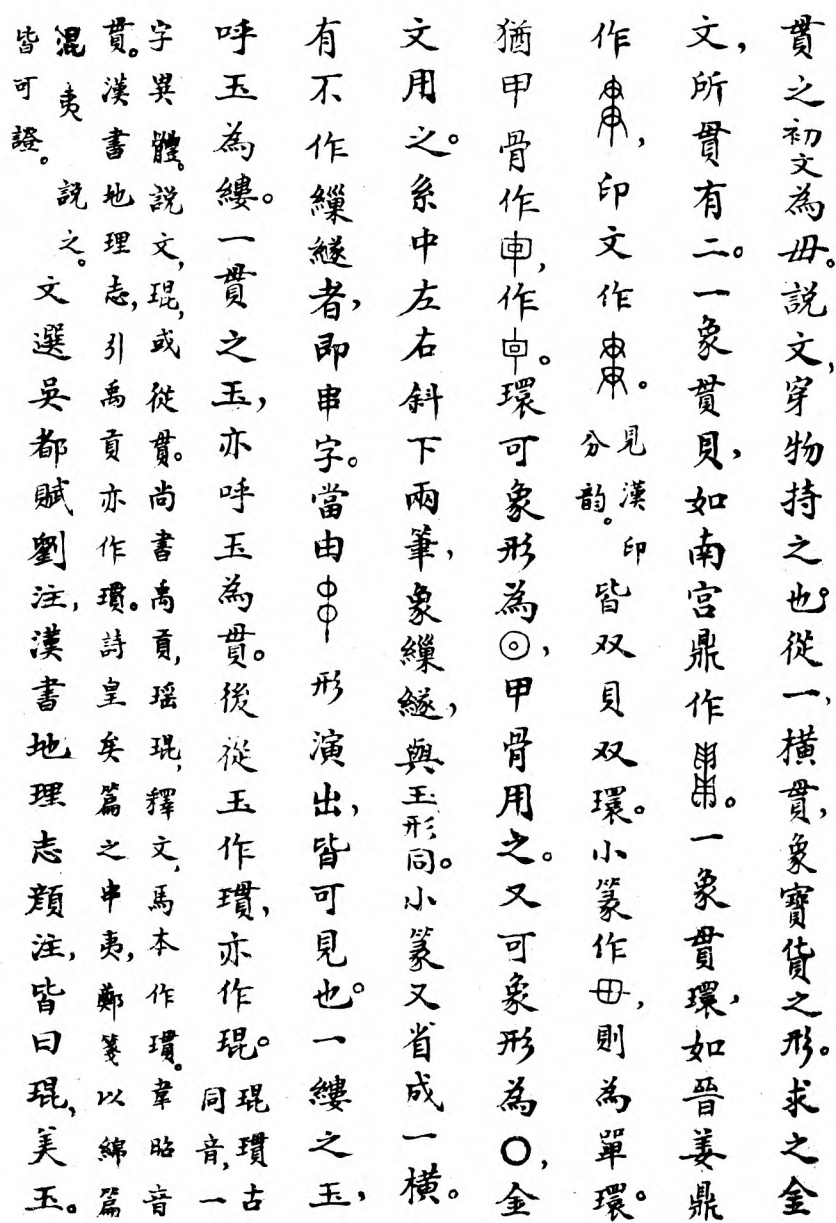 貫之初文為毌。説文,穿物持之也。從一,横貫,象寳貨之形。求之金
文,所貫有二。一象貫貝,如南宫鼎作。一象貫環,如晉姜鼎
作,印文作。見漢印分韵。皆双貝双環。小篆作毌,則為單環。
猶甲骨作,作。環可象形為◎,甲骨用之。又可象形為〇,金
文用之。糸中左右斜下兩筆,象繅繸,與玉形同。小篆又省成一横。
有不作繅繸者,即串字。當由形演出,皆可見也。一縷之玉,
呼玉為縷。一貫之玉,亦呼玉為貫。後從玉作瑻,亦作琨。琨瑻古同音,一
字異體。説文,琨,或從貫。尚書禹貢,瑶琨,釋文,馬本作瑻。韋昭音
貫。漢書地理志,引禹貢亦作瑻。詩皇矣篇之串夷,鄭箋以綿篇
混夷説之。
皆可證。文選吳都賦劉注,漢書地理志顔注,皆曰琨,美玉。